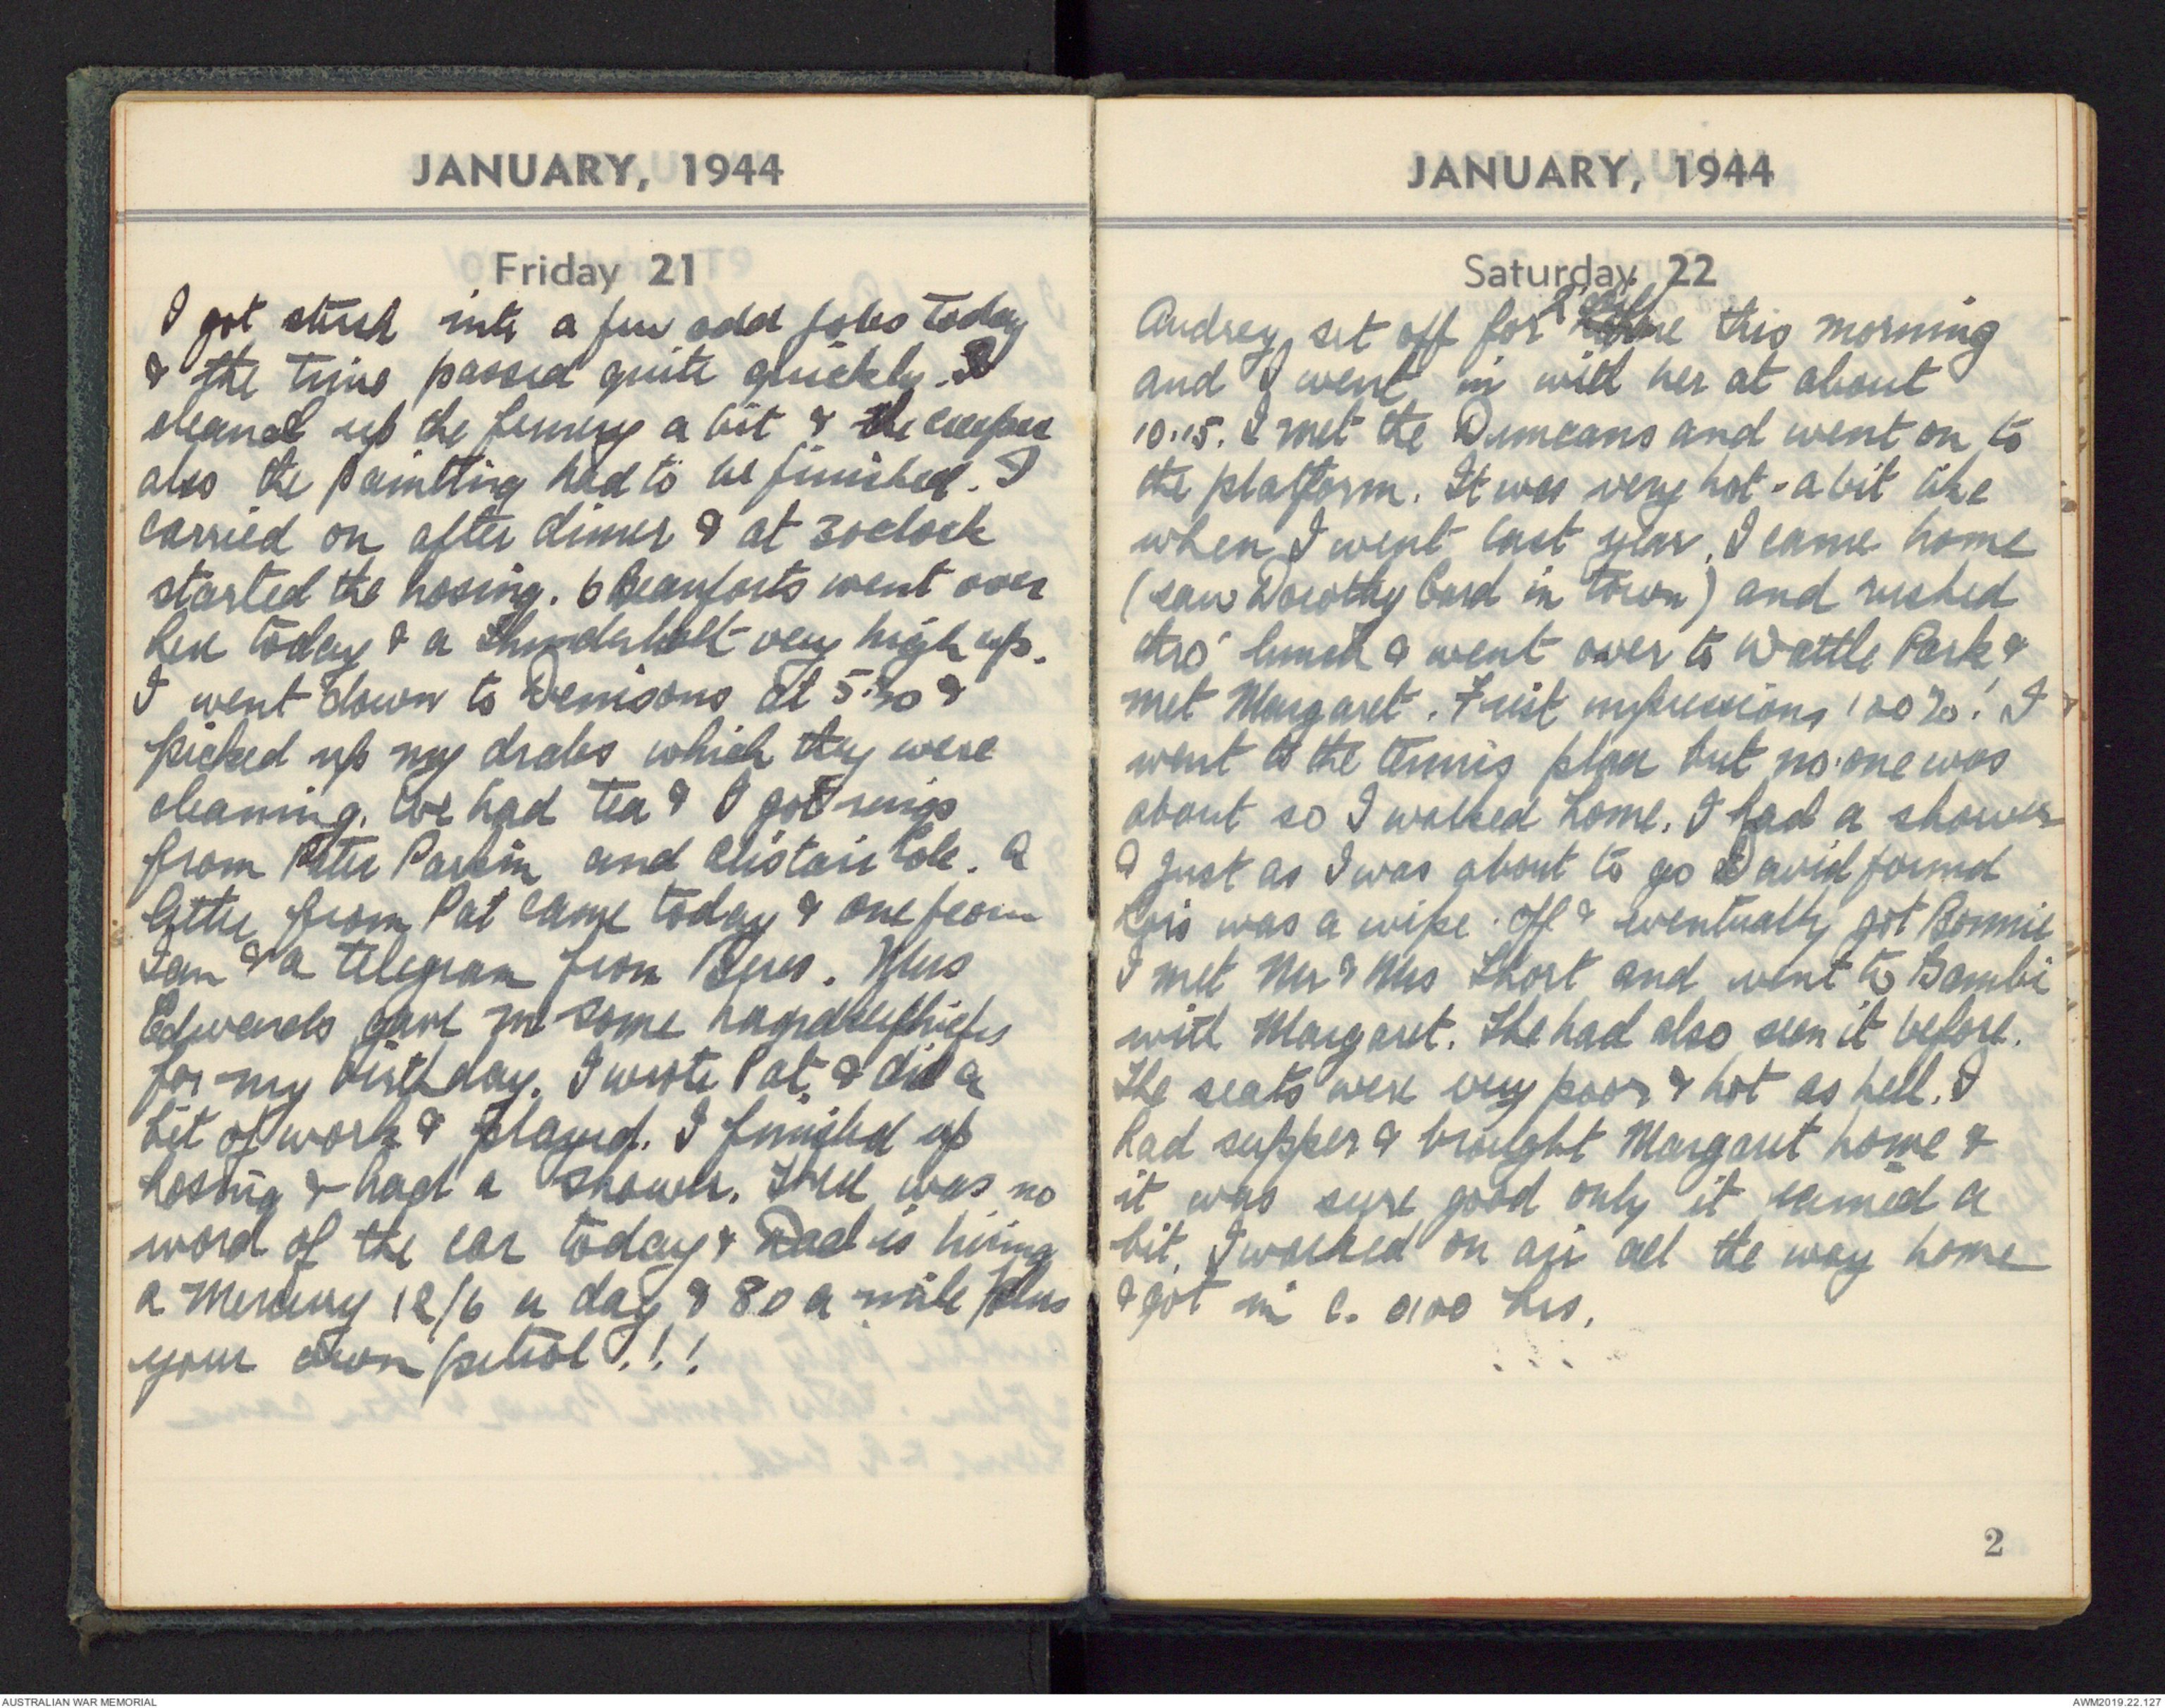 JANUARY, 1944
Friday 21
I got stuck into a few odd jobs today
& the time passed quite quickly. I
cleaned up the fernery a bit & the creeper
also the paintting had to be finished. I
carried on after dinner & at 3oclock
started the hosing. 6 Beauforts went over
here today & a Thunderbolt very high up.
I went down to Denisons at 5.30 &
picked up my drabs which they were
cleaning. We had tea & I got rings
from Peter Parkin and Alistair Cole. A
letter from Pat came today & one from
Ian & a telegram from. Mrs
Edwards gave me some handkerchiefs
for my birthday. I wrote Pat & did a
bit of work & played. I finished up
hosing & had a shower. There was no
word of the car today & Dad is hiring
a Mercury 12/6 a day & 8D a mile plus
your own petrol!!!
JANUARY, 1944
Saturday 22
Audrey set off for this morning
and I went in with her at about
10.15. I met the Duncans and went on to
the platform. It was very hot - a bit like
when I went last year. I came home
(saw Dorothy Card in town) and rushed
thro' lunch & went over to Wattle Park &
met Margaret. First impressions 100%! I
went to the tennis place but no one was
about so I walked home. I had a shower
& just as I was about to go David found
Lois was a wipe off & eventually got Bonnie
I met Mr & Mrs Short and went to Bambi
with Margaret. She had also seen it before.
The seats were very poor & hot as hell. I
had supper & brought Margaret home &
it was sure good only it rained a
bit. I walked on air all the way home
& got in c. 0100 hrs.
2
AUSTRALIAN WAR MEMORIAL
AWM2019.22.127